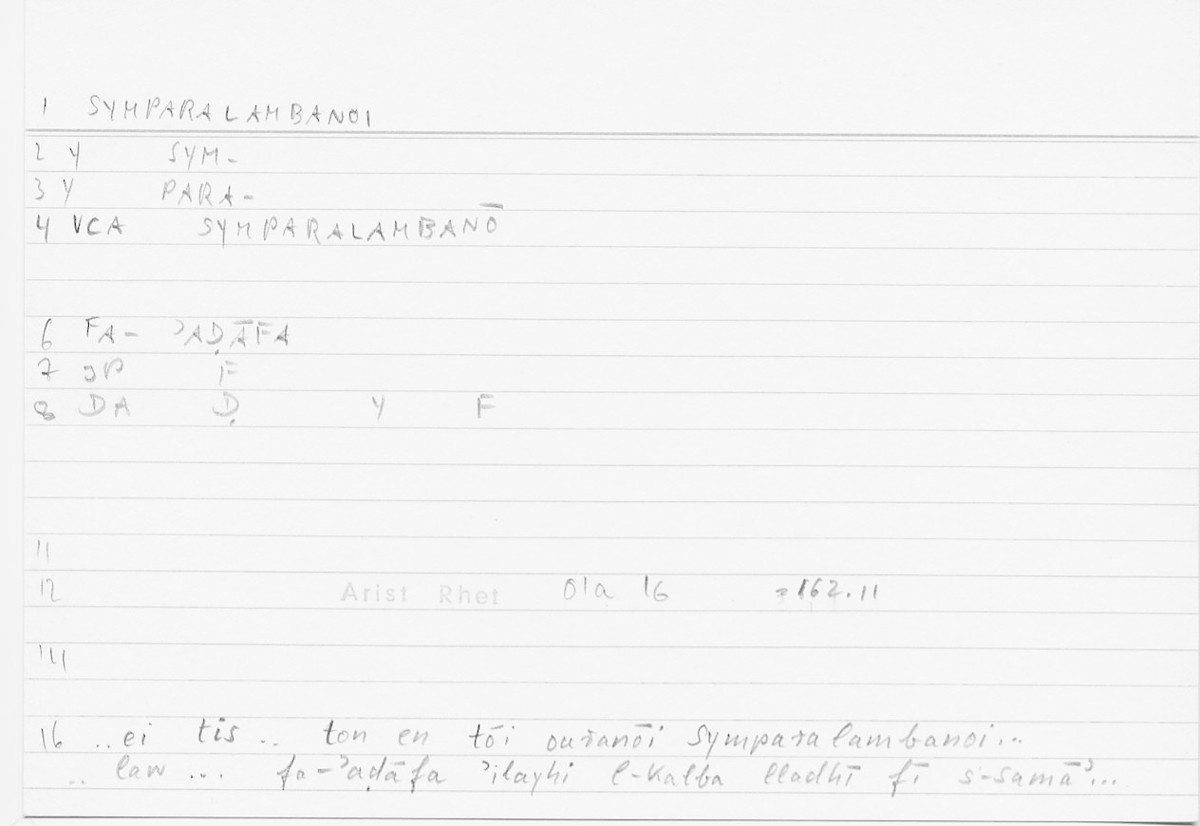 1 SYMPARALAMBANOI
2 Y SYM-
3 Y PARA-
4 VCA SYMPARALAMBANŌ
6 FA- ʾAḌĀFA
7 gP F
8 DA Ḍ Y F
11
12 Arist Rhet 01a 16 =162.11
14
16 ..ei tis .. ton en tōi ouranōi symparalambanoi...
.. law ... fa-ʾaḍāfa ʾilayhi l-kalba lladhī fī s-samāʾ...